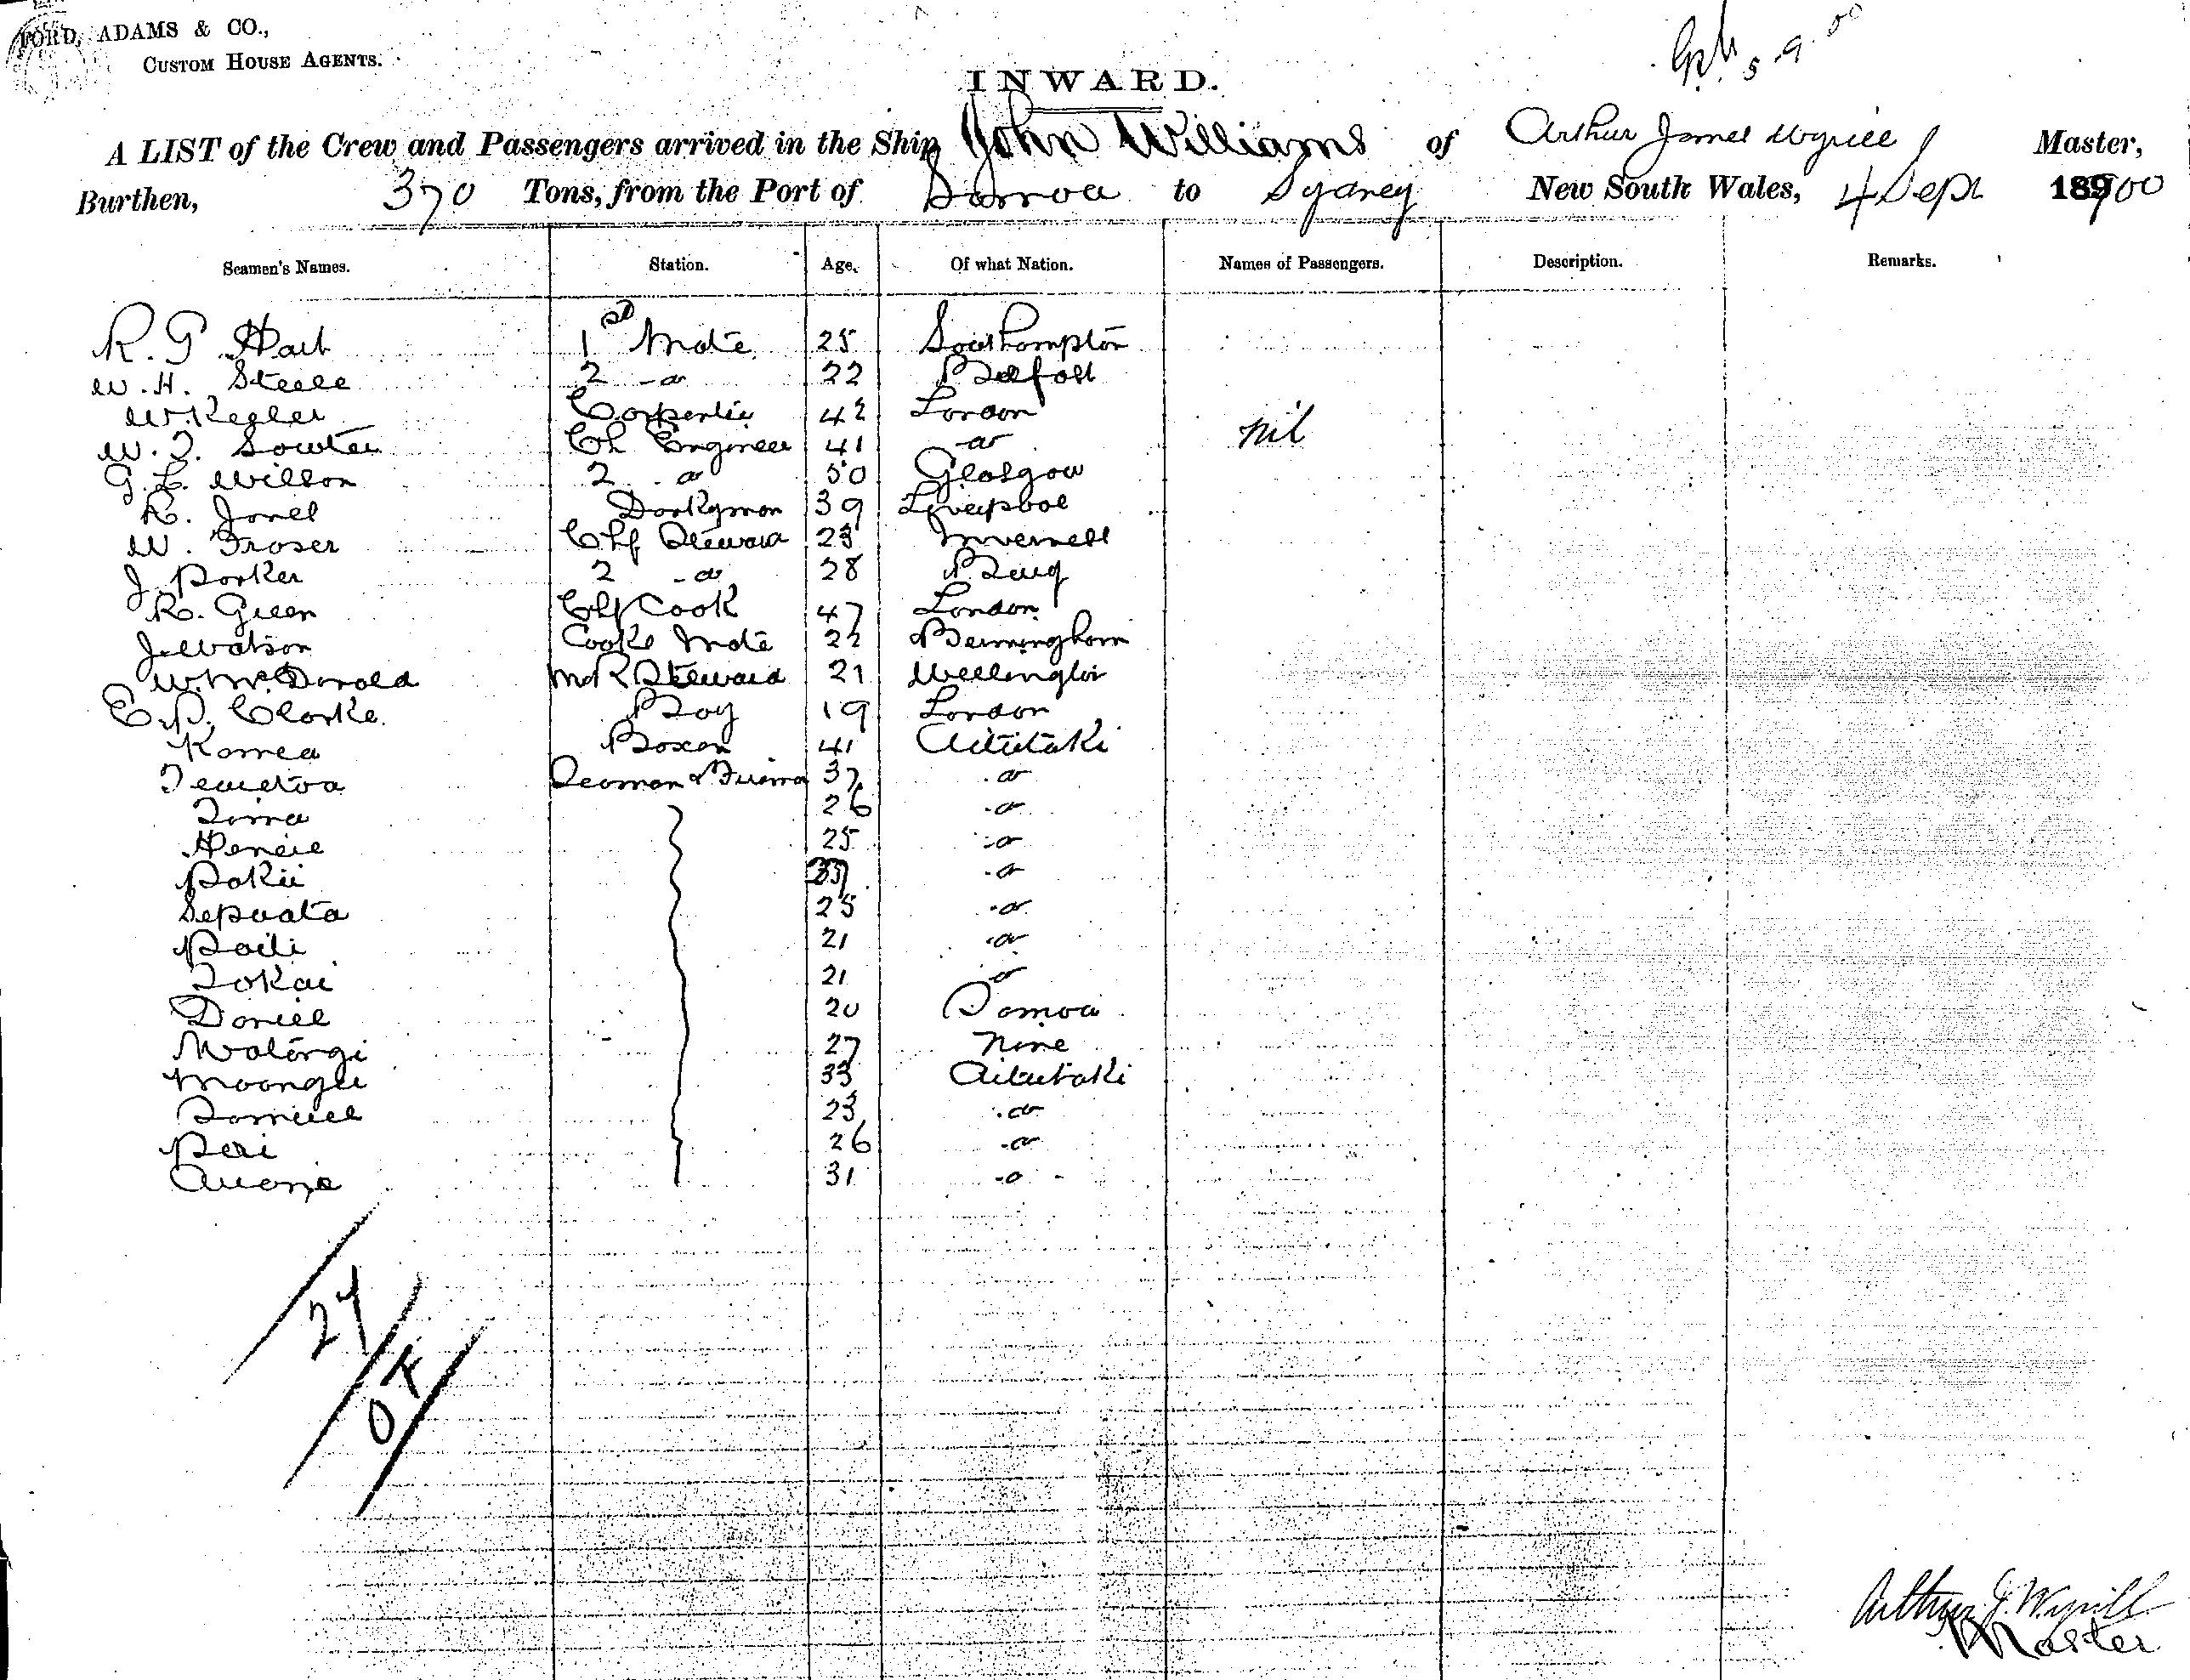 FORD, ADAMS & CO.,
CUSTOM HOUSE AGENTS.
5.9.00
INWARD.
A LIST of the Crew and Passengers arrived in the Ship John Williams of Arthur James Wyrill Master,
Burthen, 370 Tons, from the Port of Samoa to Sydney New South Wales, 4 Sept 1900
Seamen's Names. Station. Age. Of what Nation. Names of Passengers. Description. Remarks.
R. G. Hart 1st Mate 25 Southampton
W. H. Steele 2 do 22 Belfast
W. Kegler Carpenter 42 London
W. J. Sowter Ch Engineer 41 do nil
G. L. Wilson 2 do 50 Glasgow
R. Jones Donkyman 39 Liverpool
W. Fraser Chf Steward 23 Inverness
J. Parker 2 do 28
R. Green Chf Cook 47 London
J. Watson Cooks Mate 22 Bermingham
W. McDonald M R Steward 21 Wellington
E. P. Clarke Boy 19 London
Komea Boxon 41 Aitutaki
Seaman & Fireman 37 do
Tima 26 do
25 do
Pokii do
Sepuata 25 do
Paili 21 do
Tokai 21 do
Daniel 20 Samoa
Matangi 27 Niue
33 Aitutaki
Samuel 23 do
Peri 26 do
31 do
27
OK
Arthur J. Wyrill
Master